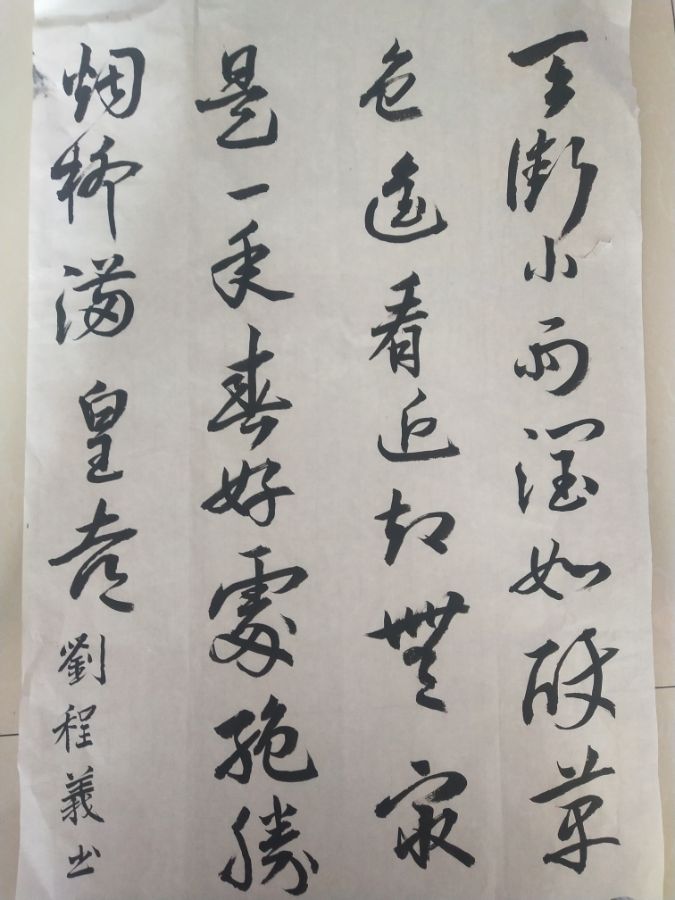 天街小雨潤如酥草
色遥看近却無最
是一年春好處絶勝
烟柳滿皇都劉程義书